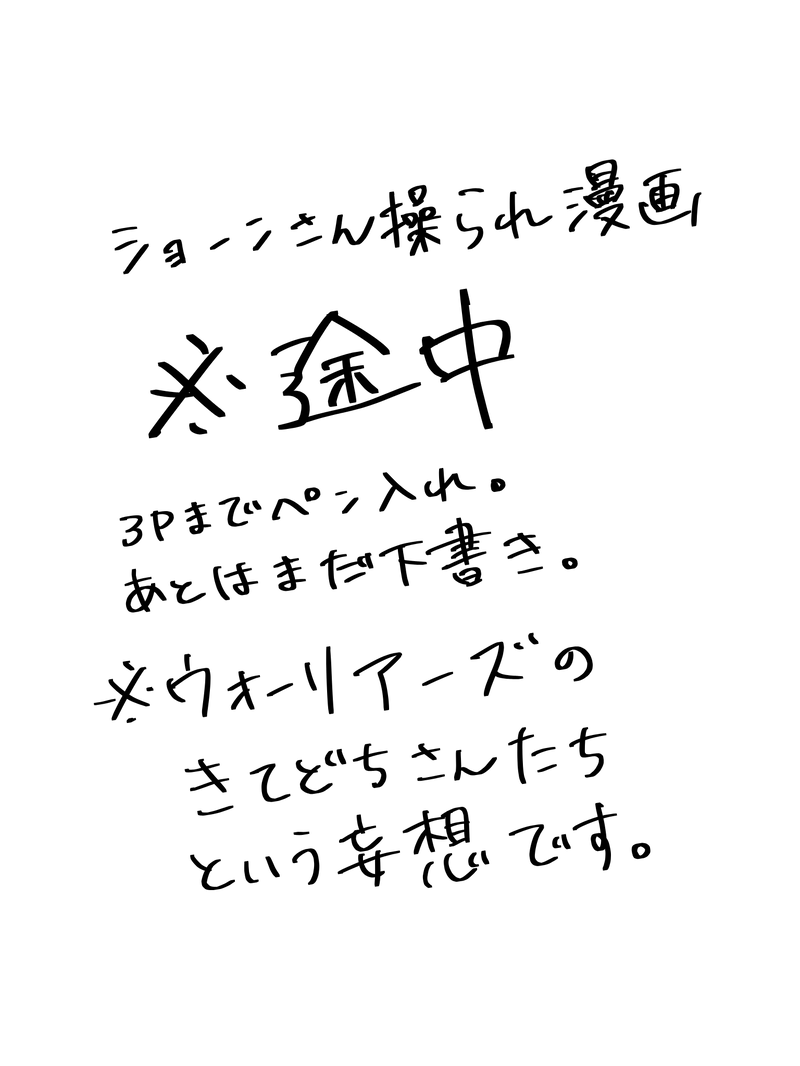 ショーンさん操られ漫画
※途中
3Pまでペン入れ。
あとはまだ下書き。
※ウォーリアーズの
きてどちさんたち
という妄想です。